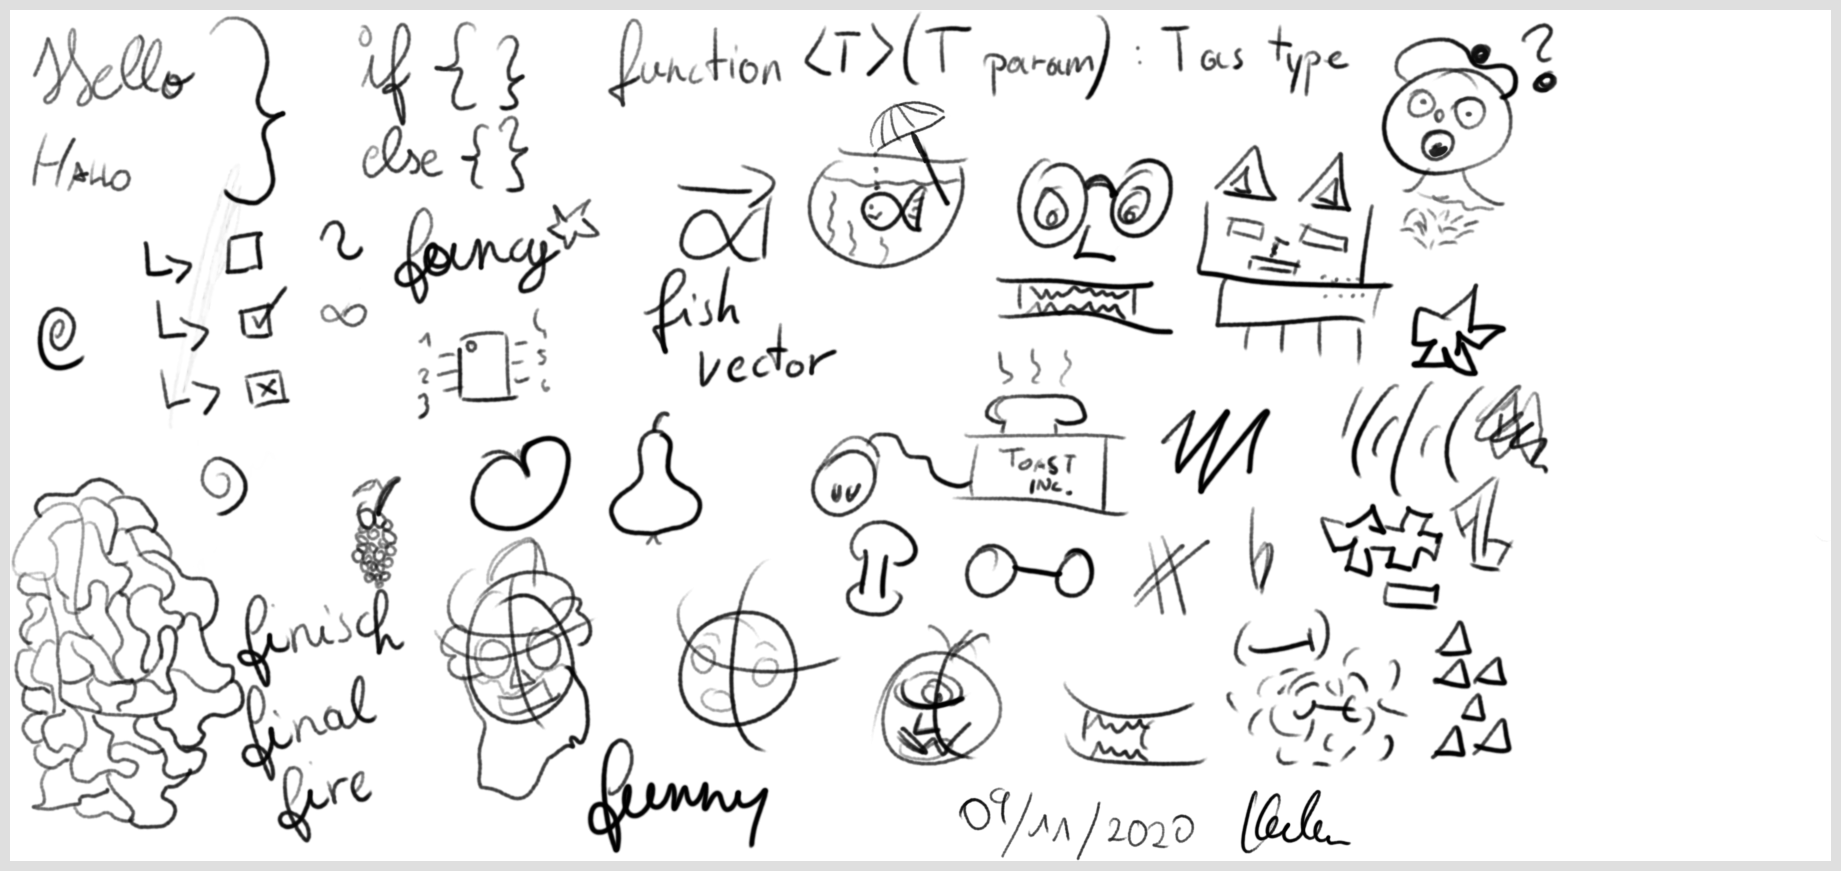 Hello
Hallo
if { }
else { }
function <T>(T param) : T as type
?
@
fancy
∞
1
2
3
5
6
fish
vector
TOAST
INC.
finisch
final
fire
funny
09/11/2020